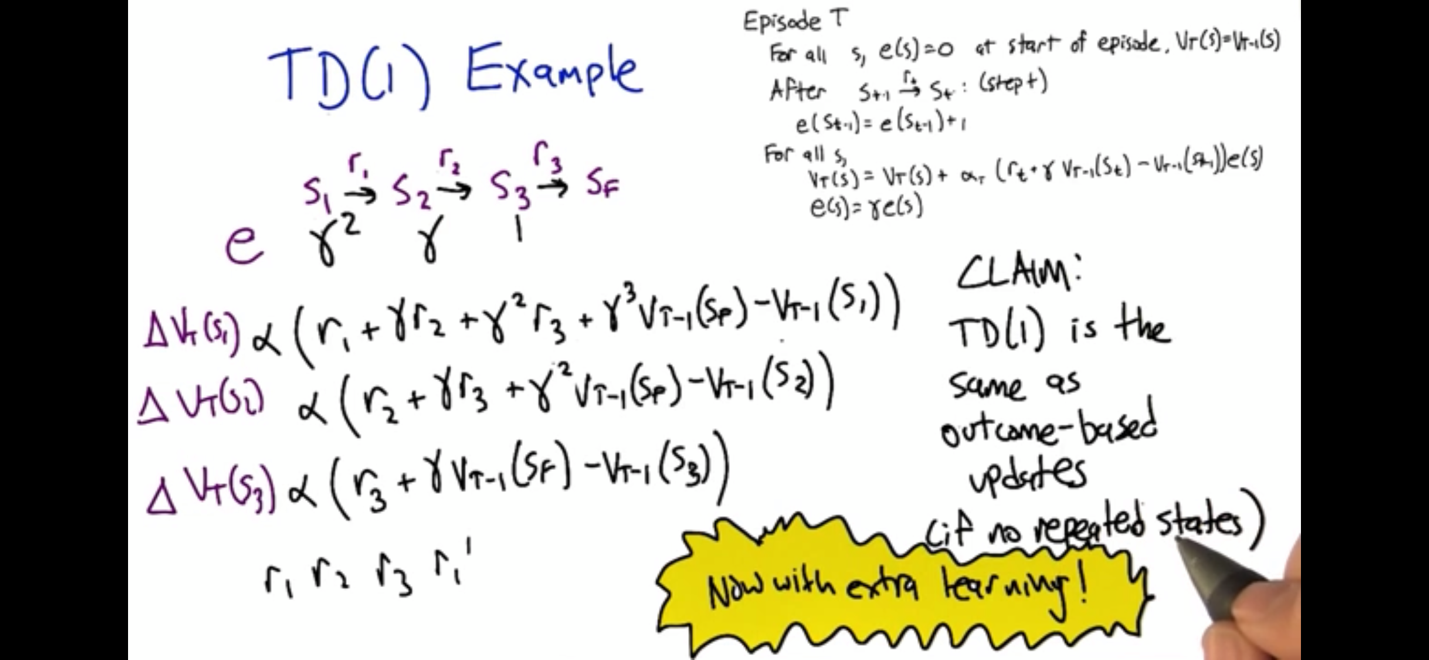 TD(1) Example
Episode T
For all s, e(s)=0 at start of episode, VT(s)=VT-1(s)
After St-1 →rt St : (step t)
e(St-1) = e(St-1)+1
For all s,
VT(s) = VT(s) + αT (rt + γ VT-1(St) - VT-1(St-1))e(s)
e(s) = γe(s)
r1 r2 r3
S1 → S2 → S3 → SF
e γ² γ 1
Δ VT(S1) α (r1 + γr2 + γ²r3 + γ³VT-1(SF) - VT-1(S1))
Δ VT(S2) α (r2 + γr3 + γ²VT-1(SF) - VT-1(S2))
Δ VT(S3) α (r3 + γ VT-1(SF) - VT-1(S3))
r1 r2 r3 r1'
CLAIM:
TD(1) is the
same as
outcome-based
updates
(if no repeated states)
Now with extra learning!